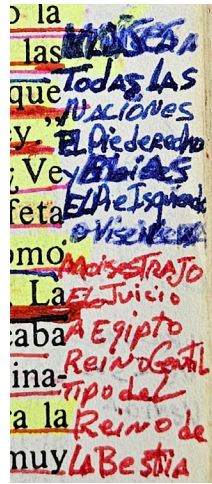 o la
las
que
y,
¿Ve
feta
omo
La
caba
ina-
a la
muy
Todas LAS
NACIONES
El Pie derecho
y Elias
El Pie Isquierdo
Moises TRAJO
El Juicio
A Egipto
Reino Gentil
Tipo del
Reino de
LA Bestia